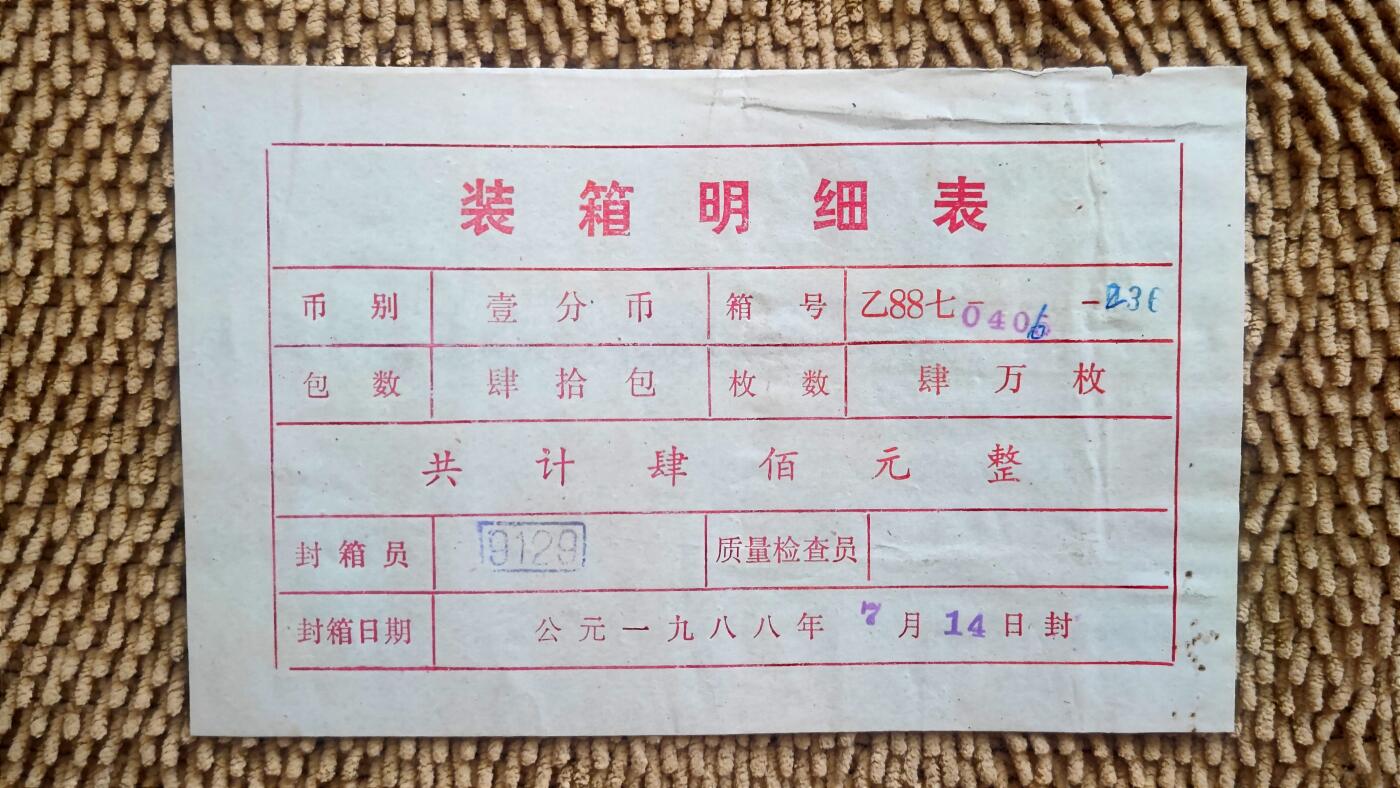 装箱明细表
币别 壹分币 箱号 乙88七-0406 -236
包数 肆拾包 枚数 肆万枚
共计肆佰元整
封箱员 9129 质量检查员
封箱日期 公元一九八八年7月14日封